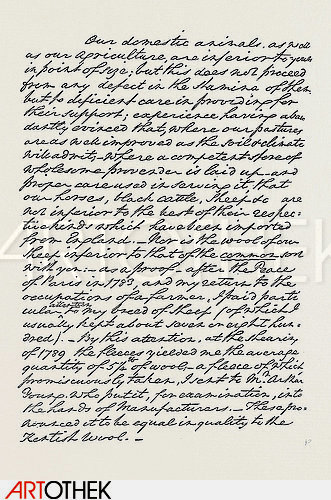 Our domestic animals, as well
as our agriculture, are inferior to yours
in point of size; but this does not proceed
from any defect in the stamina of them
but to deficient care in providing for
their support; experience having abun
dantly evinced that, where our pastures
are as well improved as the soil & climate
will admit, - where a competent store of
wholesome provender is laid up - and
proper care used in serving it, that
our horses, black cattle, sheep &c are
not inferior to the best of their respec-
tive kinds which have been imported
from England. - Nor is the wool of our
sheep inferior to that of the common sort
with you. - as a proof - after the Peace
of Paris in 1783, and my return to the
occupations of a farmer, I paid parti
cular attention to my breed of sheep (of which I
usually kept about seven or eight hun
dred). - By this attention, at the shearing
of 1789, the fleeces yielded me the average
quantity of 5¼ lb of wool, - a fleece of which
promiscuously taken, I sent to Mr. Arthur
Young, who put it, for examination, into
the hands of Manufacturers. - These pro-
nounced it to be equal in quality to the
Kentish Wool. -
ARTOTHEK